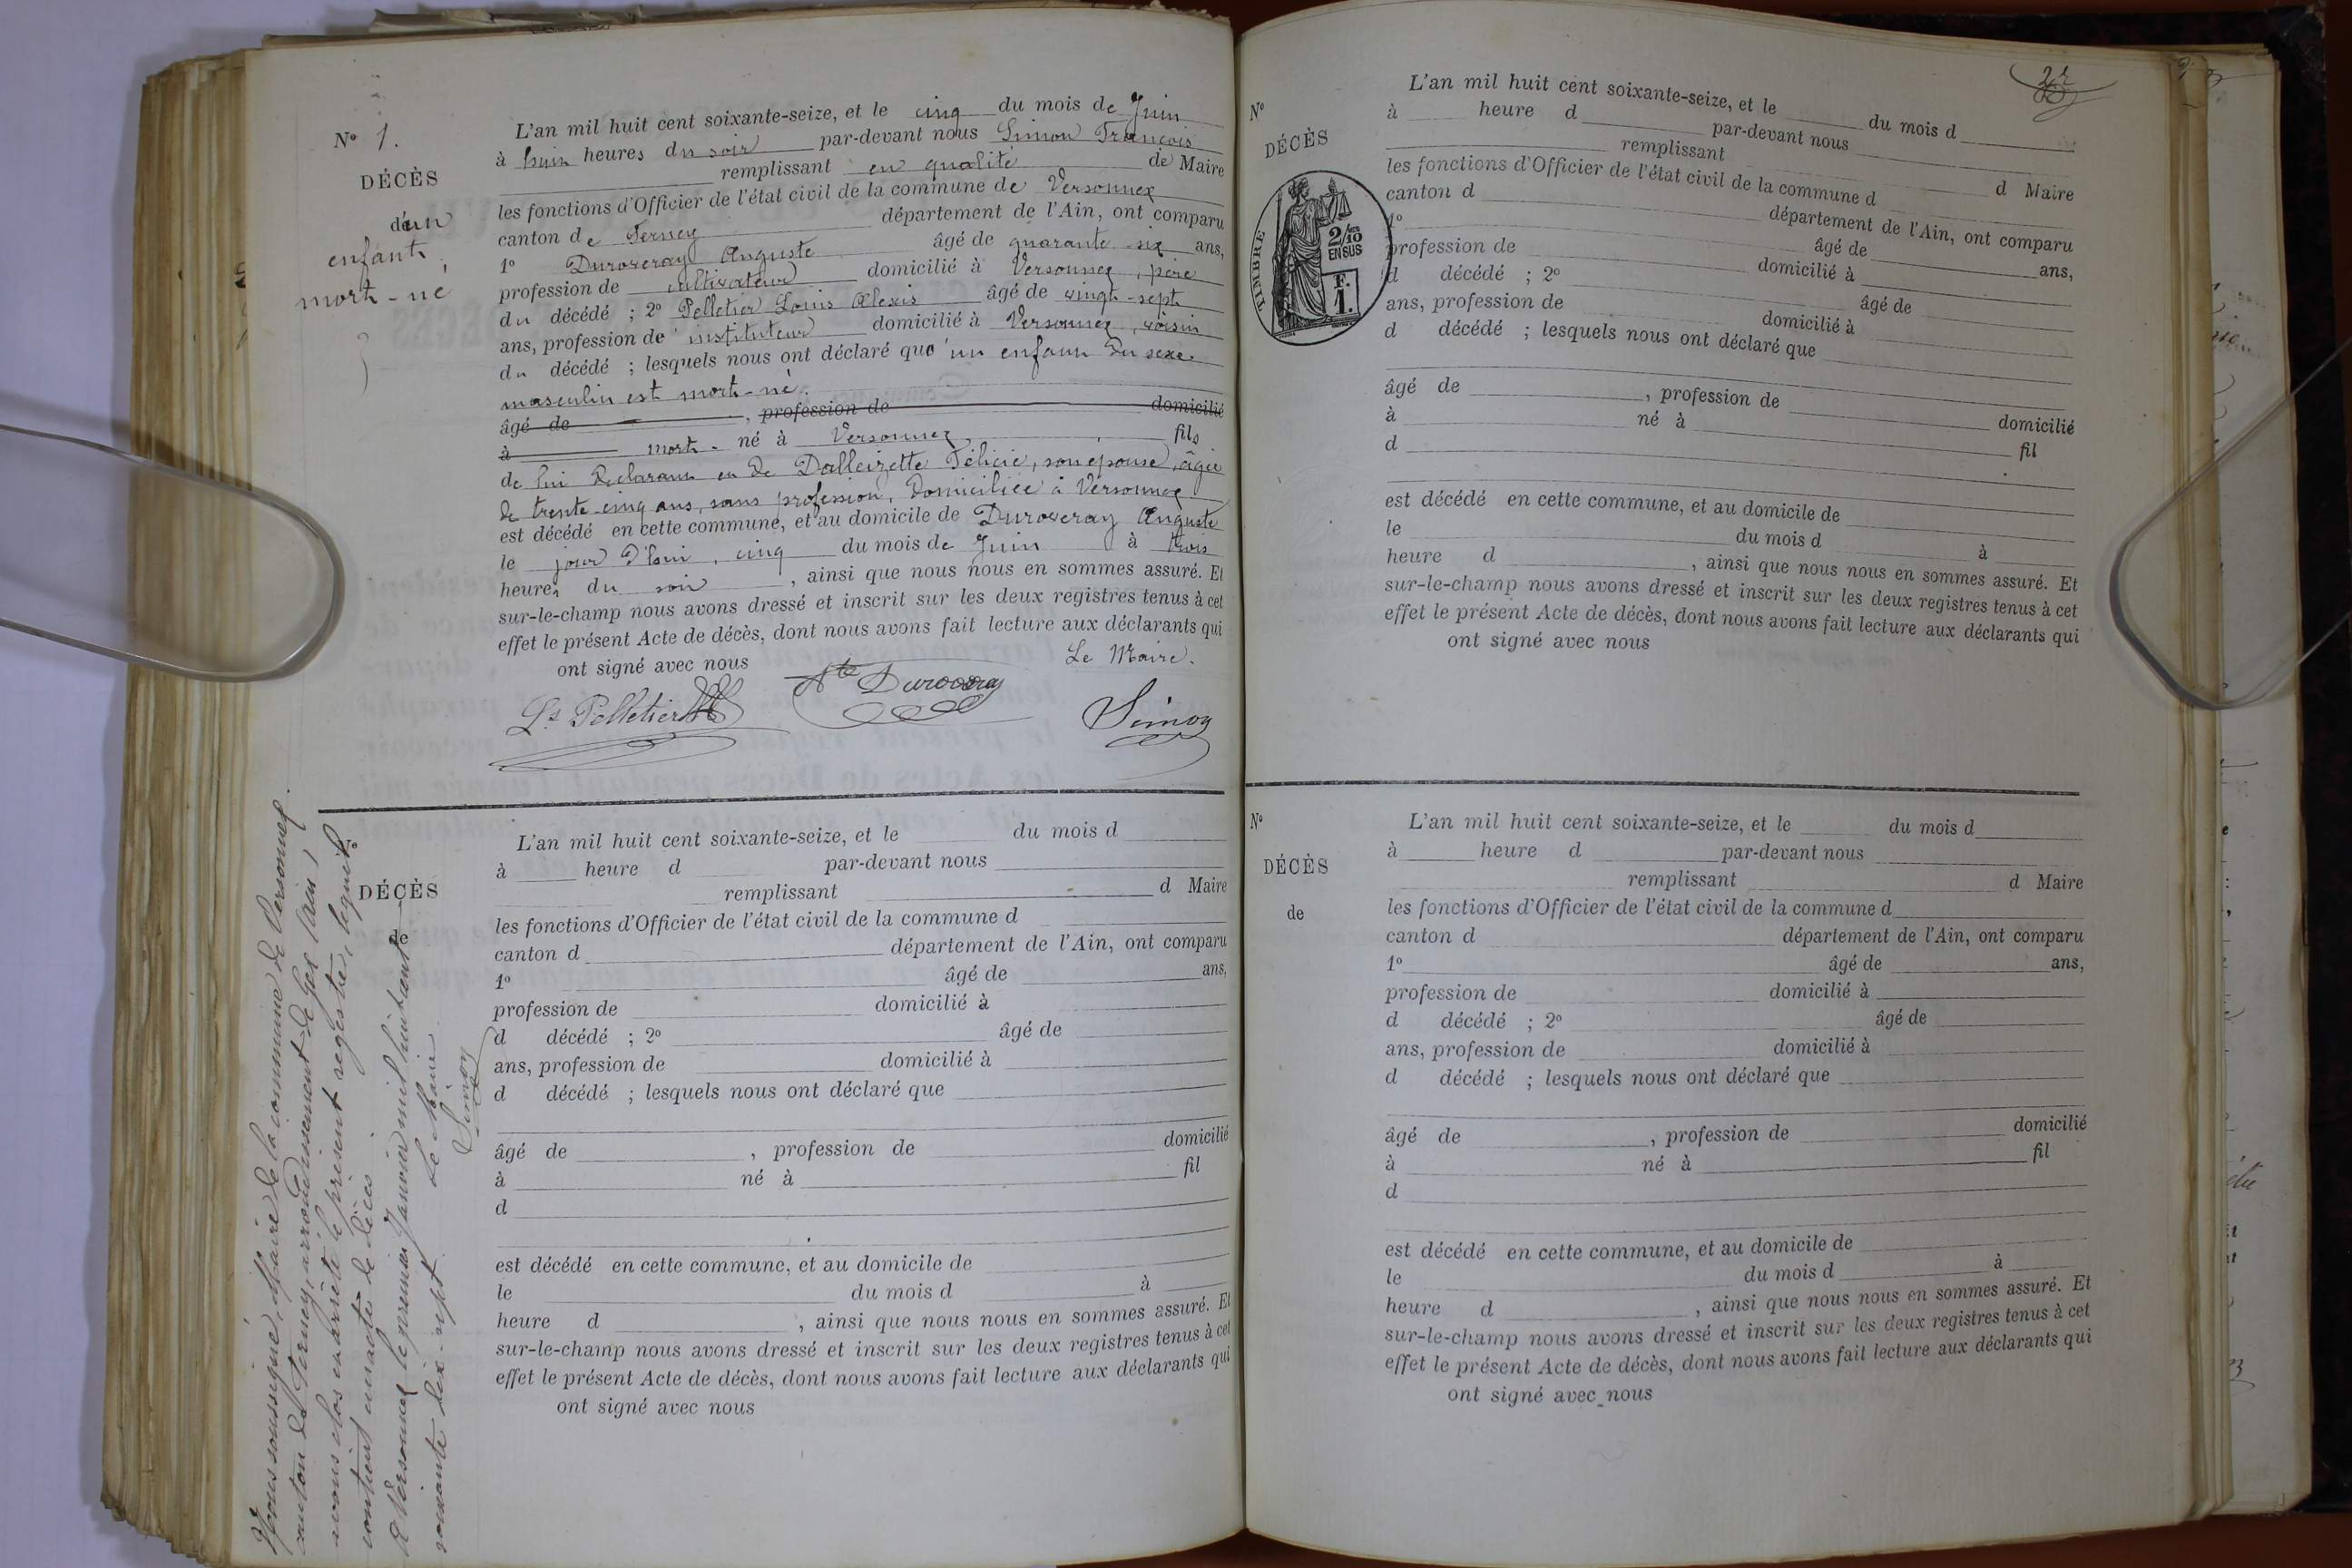 N° 1.
DÉCÈS
d'un
enfant
mort-né
L'an mil huit cent soixante-seize, et le cinq du mois de Juin
à huit heures du soir par-devant nous Simon François
remplissant en qualité de Maire
les fonctions d'Officier de l'état civil de la commune de Versonnex
canton de Ferney département de l'Ain, ont comparu
1° Duroveray Auguste âgé de quarante-six ans,
profession de cultivateur domicilié à Versonnex, père
du décédé ; 2° Pelletier Louis Alexis âgé de vingt-sept
ans, profession de instituteur domicilié à Versonnex, voisin
du décédé ; lesquels nous ont déclaré qu'un enfant du sexe
masculin est mort-né.
âgé de , profession de domicilié
à mort-né à Versonnex fils
de lui déclarant et de Dalleizette Félicie, son épouse, âgée
de trente-cinq ans, sans profession, domiciliée à Versonnex
est décédé en cette commune, et au domicile de Duroveray Auguste
le jour d'hui, cinq du mois de Juin à trois
heures du soir , ainsi que nous nous en sommes assuré. Et
sur-le-champ nous avons dressé et inscrit sur les deux registres tenus à cet
effet le présent Acte de décès, dont nous avons fait lecture aux déclarants qui
ont signé avec nous Le Maire.
Ls Pelletier Ate Duroveray Simon
Nous soussigné, Maire de la commune de Versonnex
canton de Ferney, arrondissement de Gex (Ain),
avons clos et arrêté le présent registre, lequel
contient un acte de décès.
A Versonnex le premier Janvier mil huit cent
soixante dix-sept. Le Maire
Simon
N°
DÉCÈS
de
L'an mil huit cent soixante-seize, et le du mois d
à heure d par-devant nous
remplissant d Maire
les fonctions d'Officier de l'état civil de la commune d
canton d département de l'Ain, ont comparu
1° âgé de ans,
profession de domicilié à
d décédé ; 2° âgé de
ans, profession de domicilié à
d décédé ; lesquels nous ont déclaré que
âgé de , profession de domicilié
à né à fil
d
est décédé en cette commune, et au domicile de
le du mois d à
heure d , ainsi que nous nous en sommes assuré. Et
sur-le-champ nous avons dressé et inscrit sur les deux registres tenus à cet
effet le présent Acte de décès, dont nous avons fait lecture aux déclarants qui
ont signé avec nous
N°
DÉCÈS
TIMBRE
2/10
EN SUS
F.
1.
L'an mil huit cent soixante-seize, et le du mois d
à heure d par-devant nous
remplissant d Maire
les fonctions d'Officier de l'état civil de la commune d
canton d département de l'Ain, ont comparu
1° âgé de ans,
profession de domicilié à
d décédé ; 2° âgé de
ans, profession de domicilié à
d décédé ; lesquels nous ont déclaré que
âgé de , profession de domicilié
à né à fil
d
est décédé en cette commune, et au domicile de
le du mois d à
heure d , ainsi que nous nous en sommes assuré. Et
sur-le-champ nous avons dressé et inscrit sur les deux registres tenus à cet
effet le présent Acte de décès, dont nous avons fait lecture aux déclarants qui
ont signé avec nous
N°
DÉCÈS
de
L'an mil huit cent soixante-seize, et le du mois d
à heure d par-devant nous
remplissant d Maire
les fonctions d'Officier de l'état civil de la commune d
canton d département de l'Ain, ont comparu
1° âgé de ans,
profession de domicilié à
d décédé ; 2° âgé de
ans, profession de domicilié à
d décédé ; lesquels nous ont déclaré que
âgé de , profession de domicilié
à né à fil
d
est décédé en cette commune, et au domicile de
le du mois d à
heure d , ainsi que nous nous en sommes assuré. Et
sur-le-champ nous avons dressé et inscrit sur les deux registres tenus à cet
effet le présent Acte de décès, dont nous avons fait lecture aux déclarants qui
ont signé avec nous